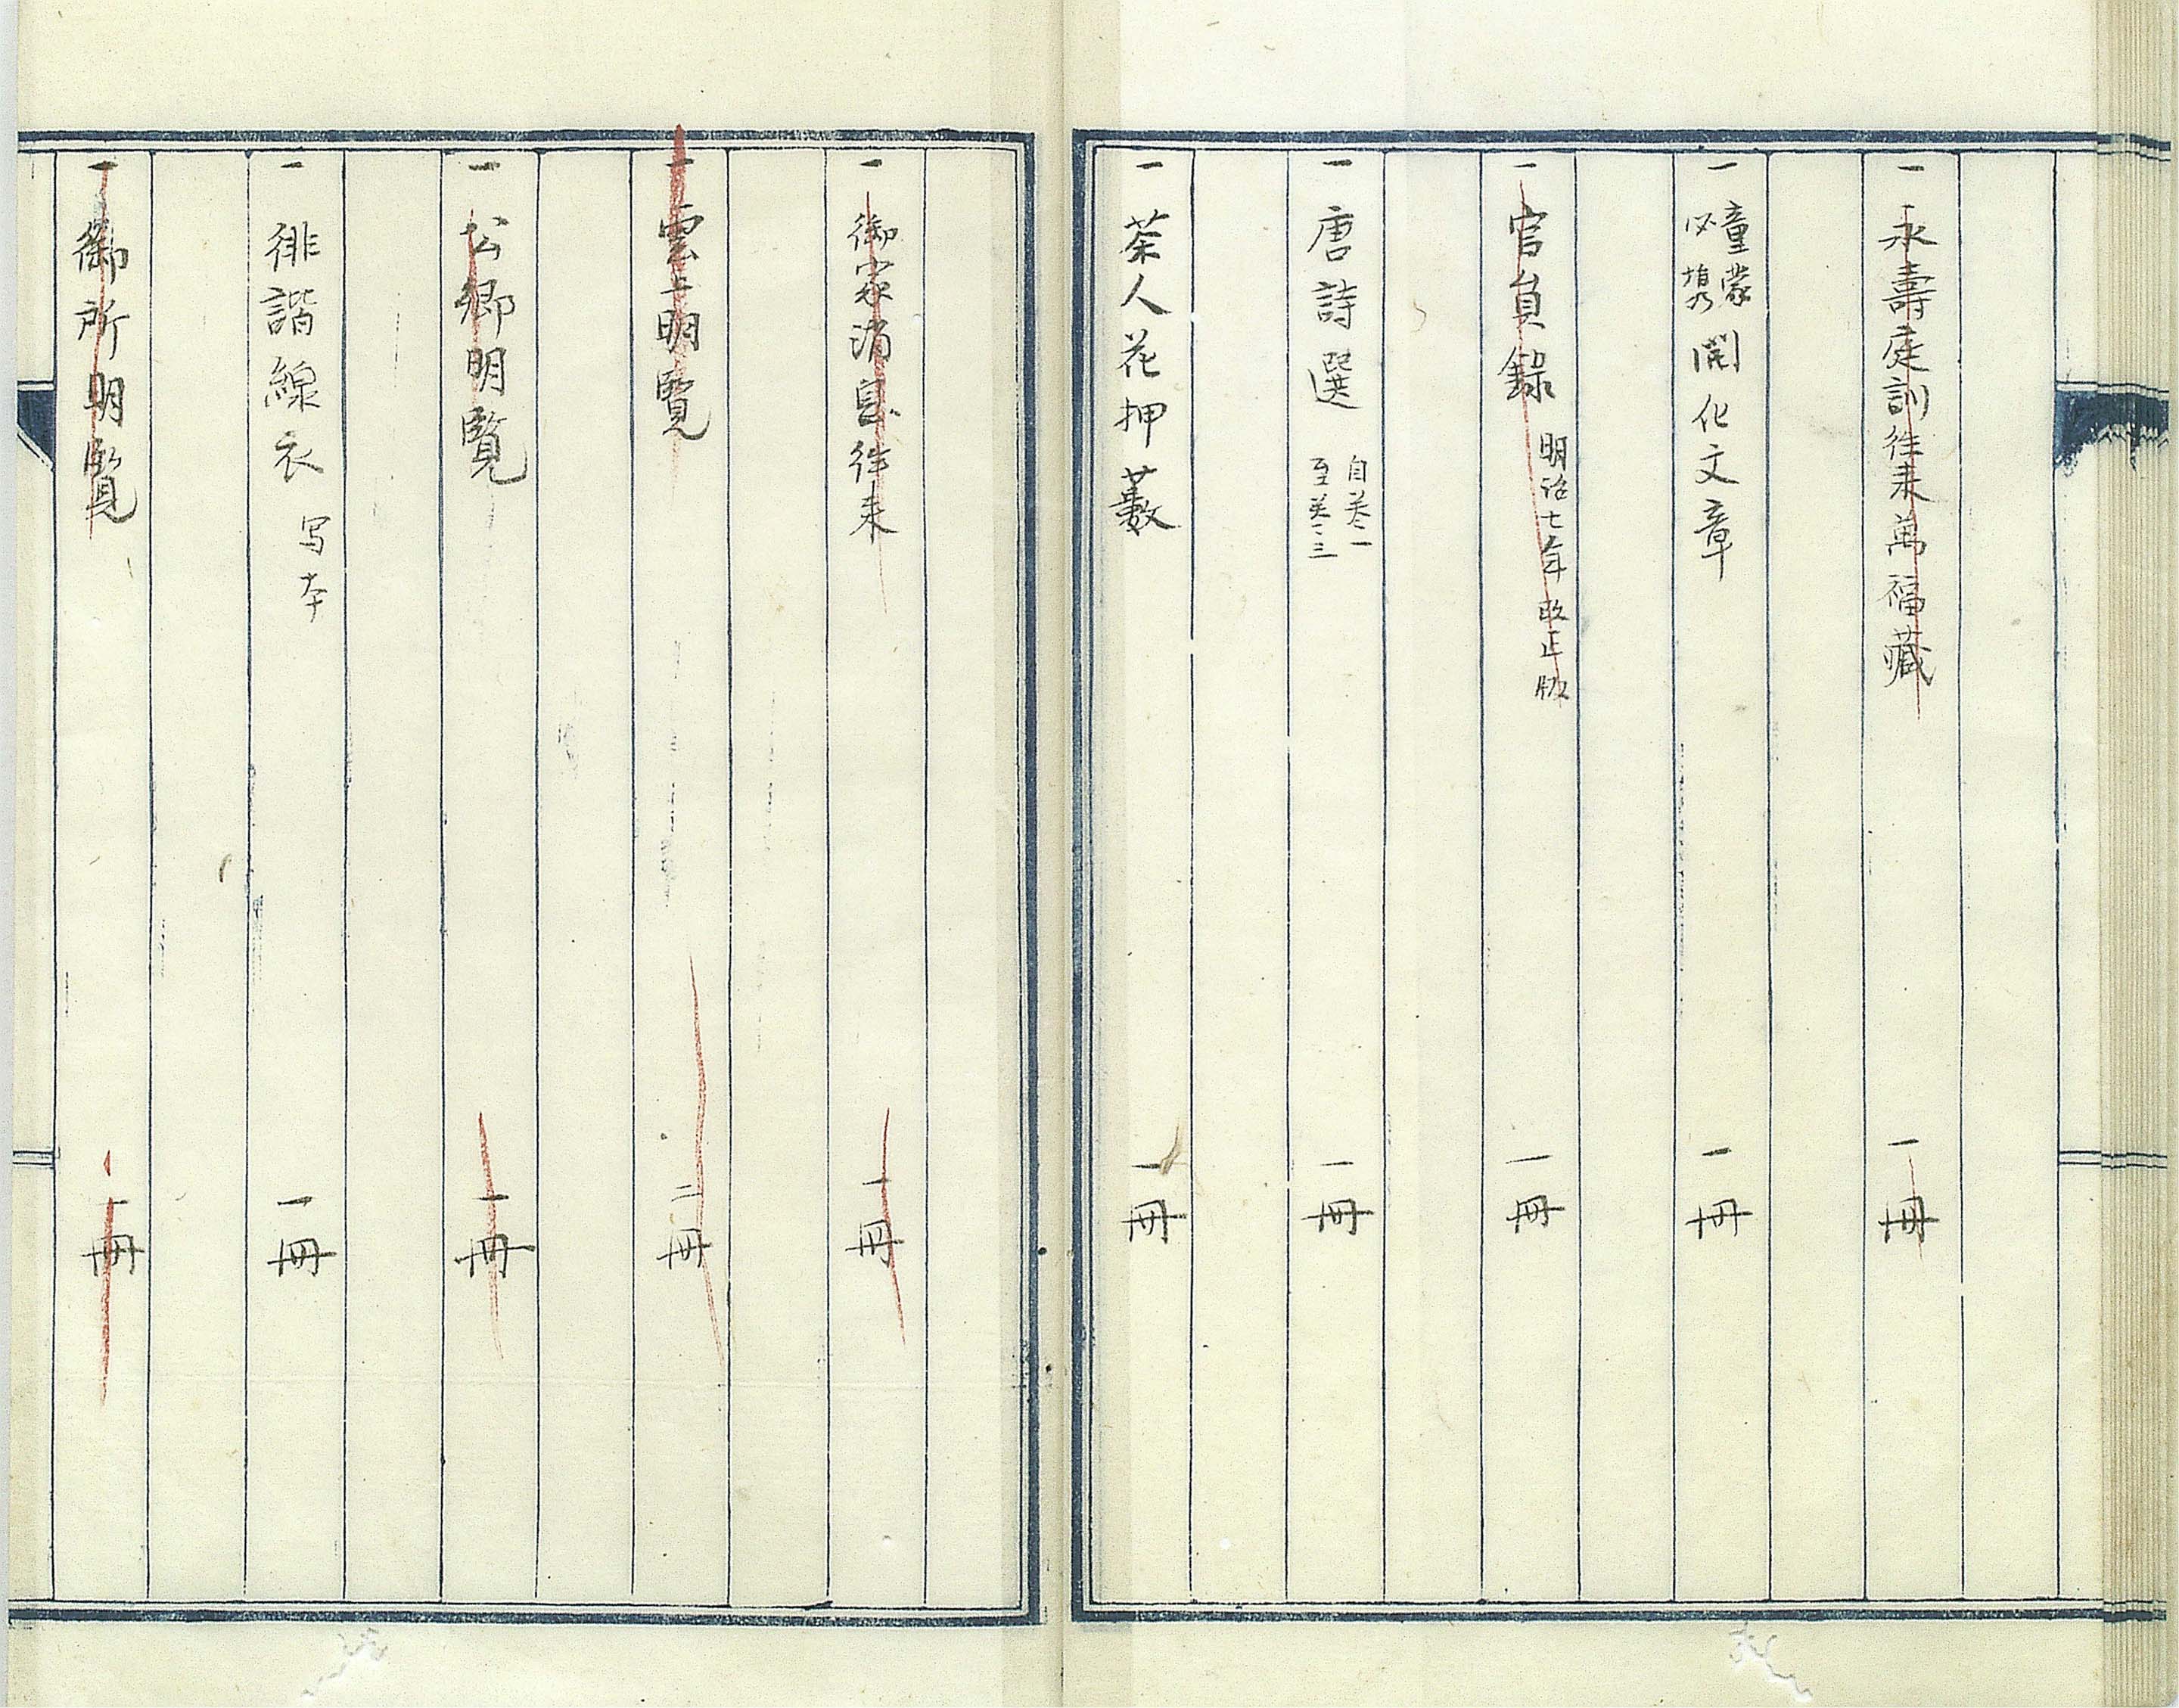 一 永壽庭訓徃来萬福藏 一冊
一 童蒙必携 開化文章 一冊
一 官員録 明治七年改正版 一冊
一 唐詩選 自巻一至巻三 一冊
一 茶人花押藪 一冊
一 御家消息徃来 一冊
一 雲上明覧 二冊
一 公卿明覧 一冊
一 徘諧線衣 写本 一冊
一 御所明覧 一冊